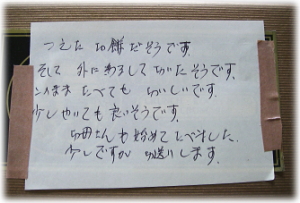 つえた  餅だそうです。
そして 外にあるして  いたそうです。
このまま たべても おいしいです。
少しやいても 良いそうです。
お母さんも 始めて たべました。
少しですが お送りします。